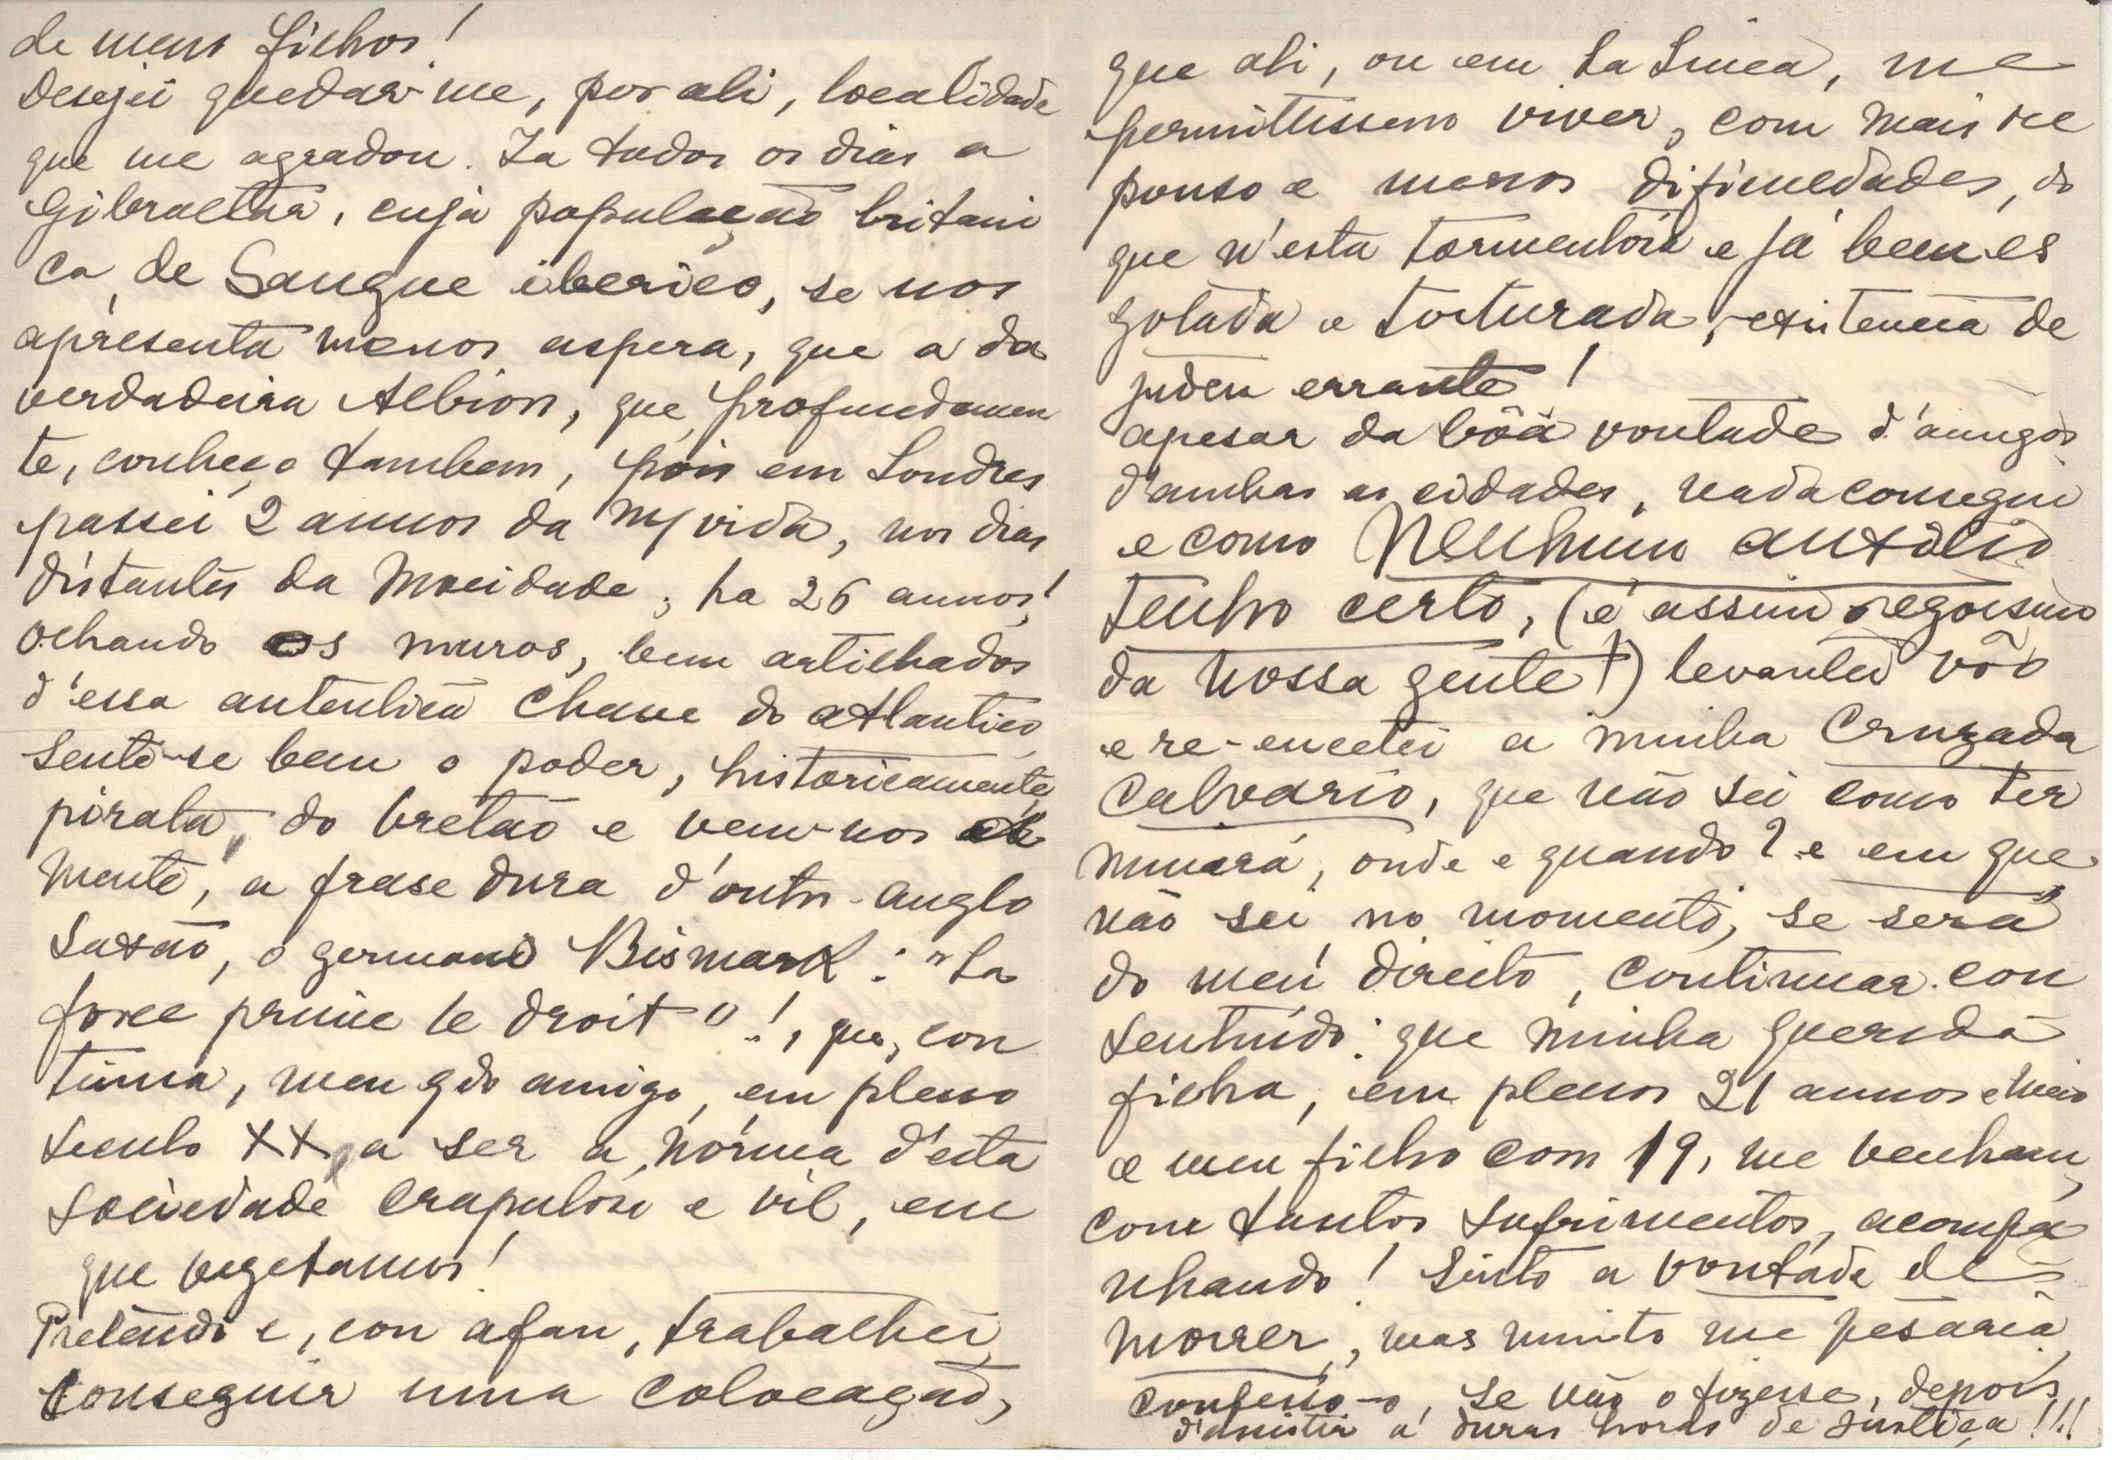 de meus filhos!
Desejei quedar-me, por ali, localidade
que me agradou. Ia todos os dias a
Gibraltar, cuja população britani
ca, de Sangue iberico, se nos
apresenta menos aspera, que a da
verdadeira Albion, que, profundamen
te, conheço tambem, pois em Londres
passei 2 annos da m/ vida, nos dias
distantes da Mocidade, ha 26 annos!
Olhando os muros, bem artilhados
d'essa autentica Chave do Atlantico,
Sente-se bem o poder, historicamente,
pirata, do bretão e vem-nos á
Mente, a frase dura d'outro anglo
Saxão, o germano Bismark: "La
force prime le droit"!, que, con
tinúa, meu qdo amigo, em pleno
seculo XX, a ser a nórma d'esta
sociedade crapulosa e vil, em
que vegetamos!
Pretendi e, con afan, trabalhei,
conseguir uma colocação,
que ali, ou em La Linea, me
permittissem viver, com mais re
pouso e menos dificuldades, do
que n'esta tormentosa e já bem es
gotada e torturada, existencia de
judeu errante!
apesar da bôa vontade d'amigos
d'ambas as cidades, nada consegui
e como Nenhum auxilio
tenho certo, (é assim o egoismo
da nossa gente!) levantei vôo
e re-encetei a minha Cruzada
Calvario, que não sei como ter
minará, onde e quando? e em que
não sei no momento, se será
do meu direito, continuar con
sentindo: que minha querida
filha, em plenos 21 annos e meio
e meu filho com 19, me venham,
com tantos sufrimentos, acompa
nhando! Sinto a vontade de
morrer, mas muito me pesaria,
confesso-o, se não o fizesse, depois
d'assistir á duras horas de Justiça!!!